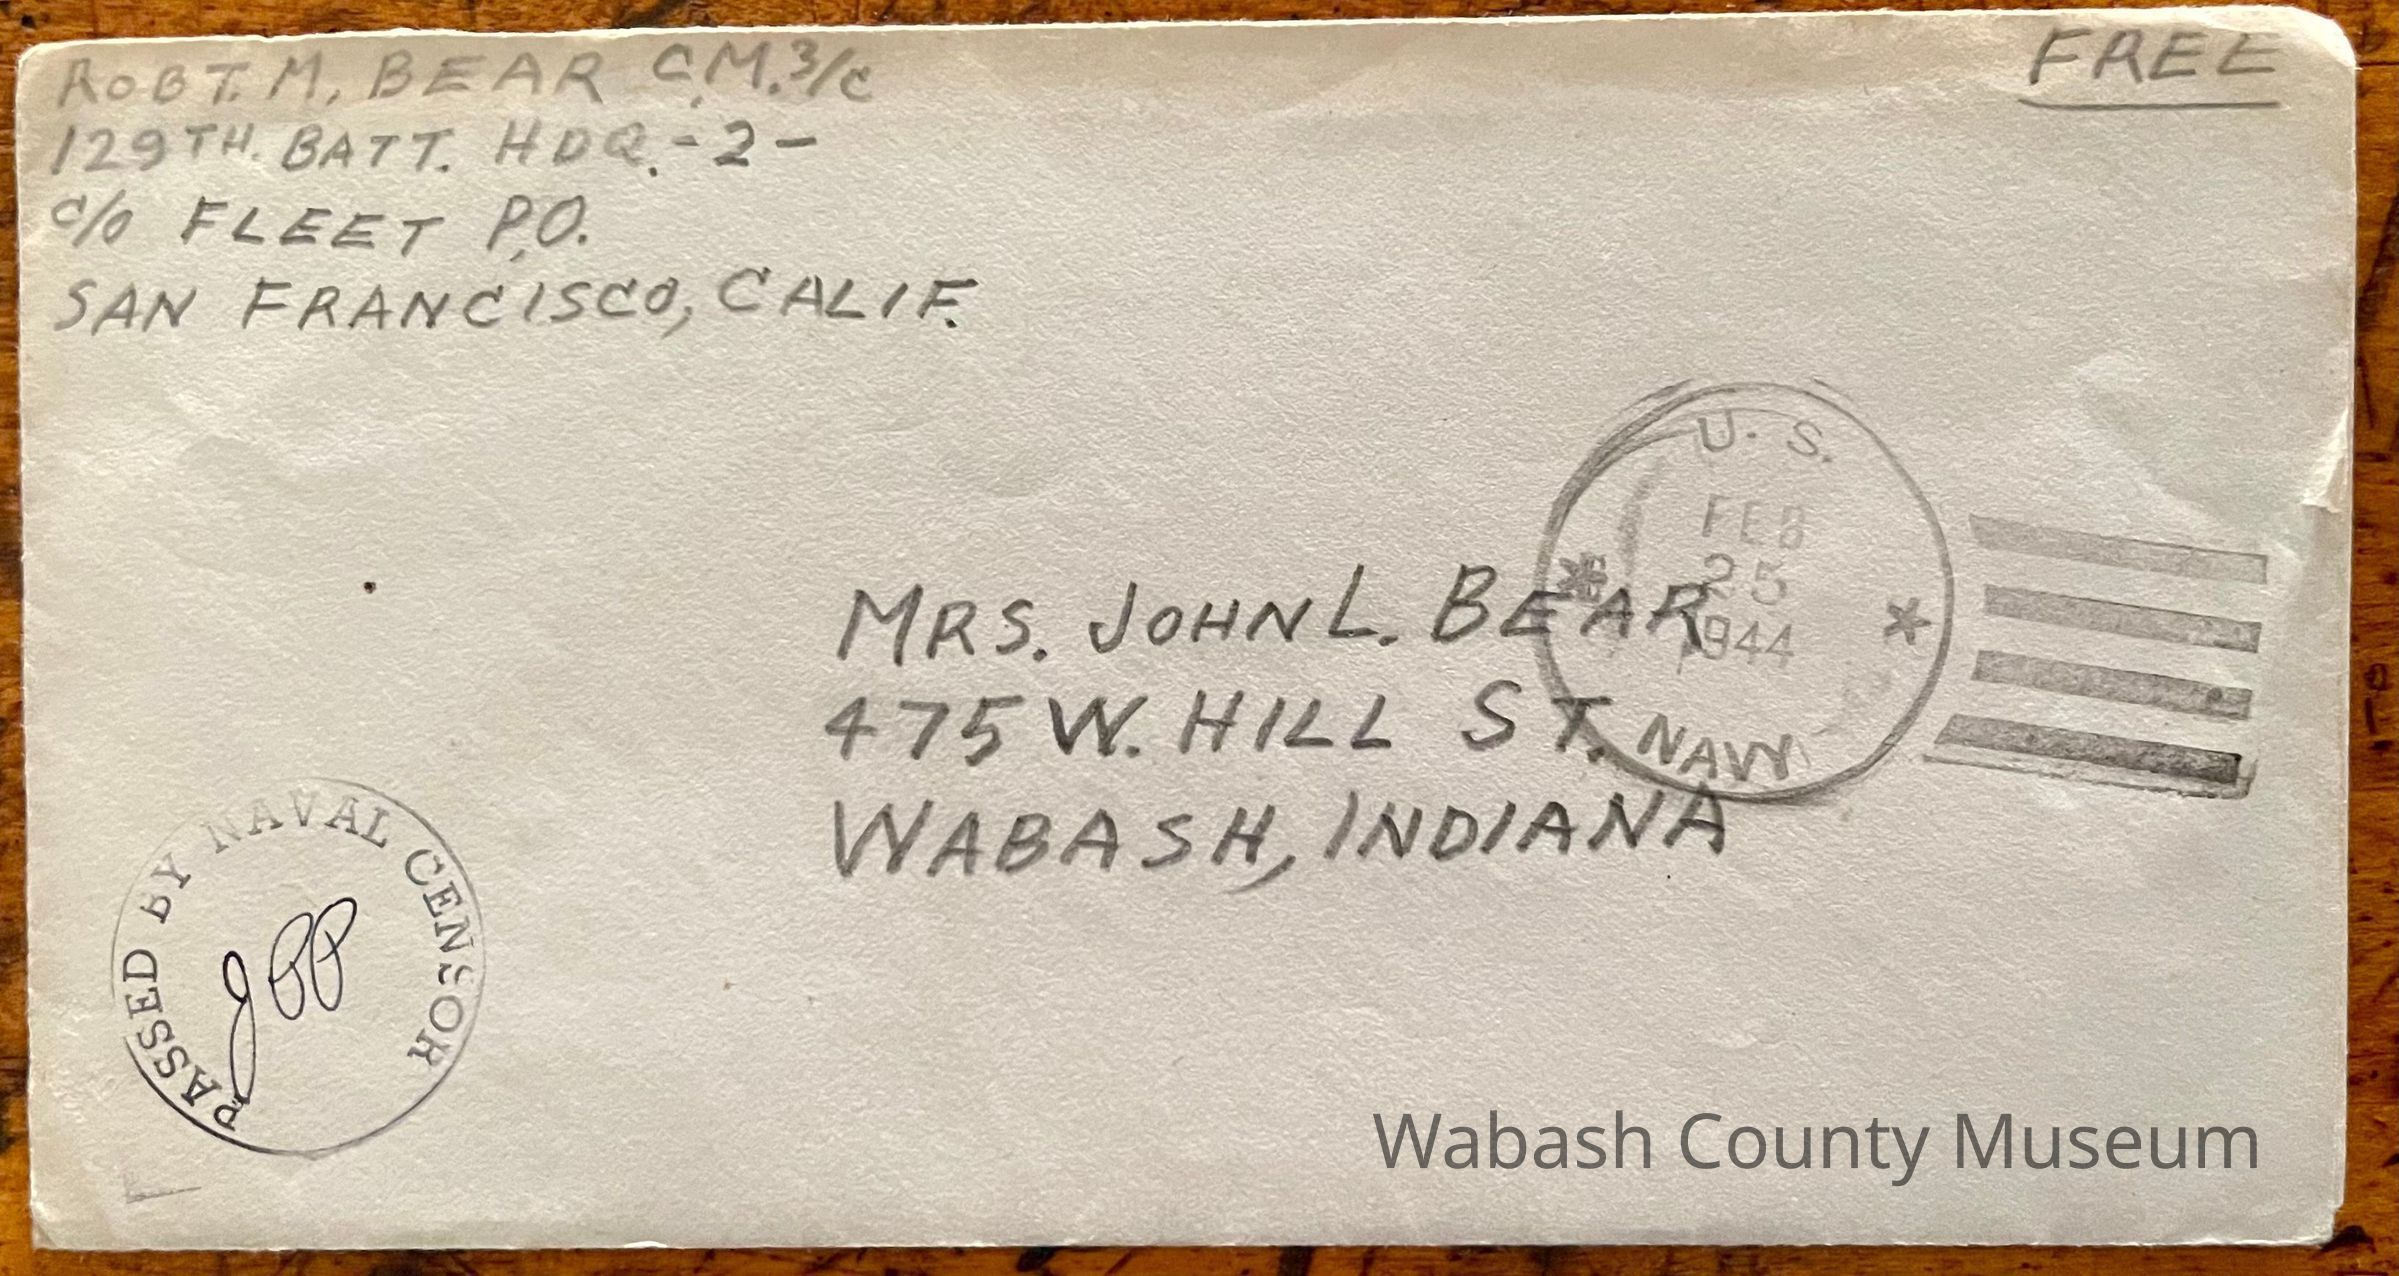 ROBT. M. BEAR C.M. 3/c
129TH. BATT. HDQ. - 2 -
c/o FLEET P.O.
SAN FRANCISCO, CALIF.
FREE
U. S.
FEB
25
1944
NAVY
MRS. JOHN L. BEAR
475 W. HILL ST.
WABASH, INDIANA
PASSED BY NAVAL CENSOR
JPP
Wabash County Museum